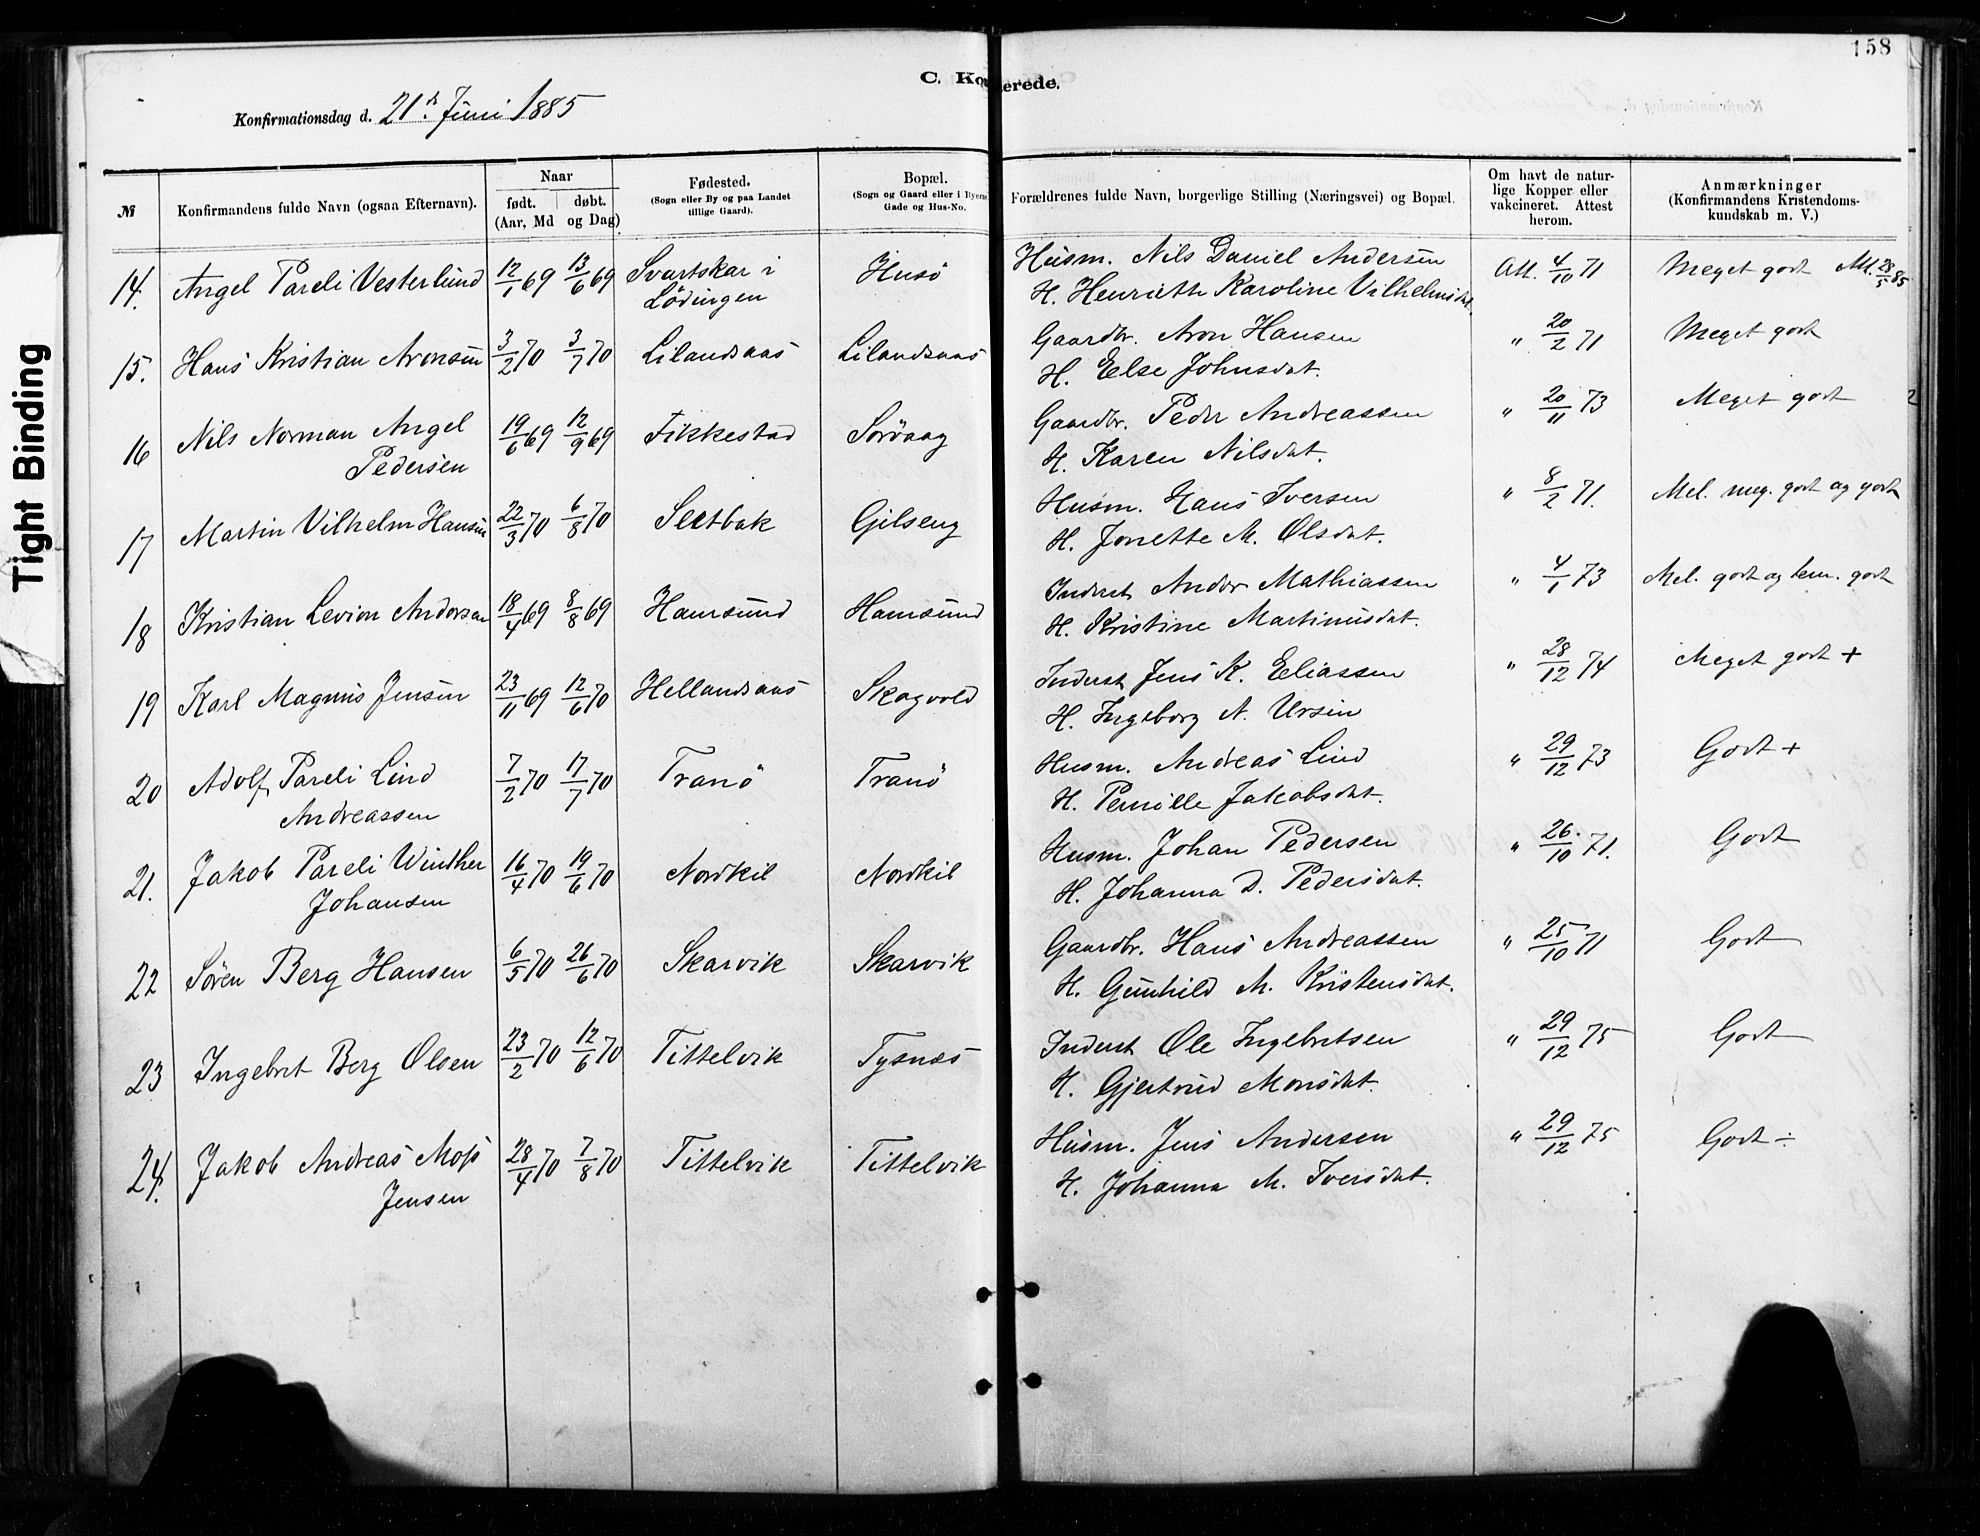 158
C. Ko
erede.
Konfirmationsdag d. 21de Juni 1885
№
Konfirmandens fulde Navn (ogsaa Efternavn).
Naar
født. døbt.
(Aar, Md og Dag)
Fødested.
(Sogn eller By og paa Landet
tillige Gaard).
Bopæl.
(Sogn og Gaard eller i Byerne
Gade og Hus-No.
Forældrenes fulde Navn, borgerlige Stilling (Næringsvei) og Bopæl.
Om havt de natur-
lige Kopper eller
vakcineret. Attest
herom.
Anmærkninger
(Konfirmandens Kristendoms-
kundskab m. V.)
Tight Binding
14. Angel Pareli Vesterlund 12/1 69 13/6 69 Svartskar i Husö Husm. Nils Daniel Andersen Att. 4/10 71 Meget godt Att. 28/5 85
Lödingen H. Henriette Karoline Vilhelmsdat.
15. Hans Kristian Aronsen 3/2 70 3/7 70 Lilandsaas Lilandsaas Gaardbr. Aron Hansen " 20/2 71 Meget godt
H. Else Johnsdat.
16 Nils Norman Angel 19/6 69 12/9 69 Fikkestad Sörvaag Gaardbr. Peder Andreassen " 20/11 73 Meget godt 2
Pedersen H. Karen Nilsdat.
17 Martin Vilhelm Hansen 22/3 70 6/8 70 Sletbak Gilseng Husm. Hans Iversen " 8/2 71. Mel. meg. godt og godt
H. Jonette M. Olsdat.
18 Kristian Levion Andersen 18/4 69 8/8 69 Hamsund Hamsund Inderst Anders Mathiassen " 4/1 73 Mel. godt og tem. godt
H. Kristine Martinusdat.
19 Karl Magnus Jensen 23/11 69 12/6 70 Hellandsaas Skogvold Inderst Jens K. Eliassen " 28/12 74 Meget godt +
H. Ingeborg A. Ursin
20 Adolf Pareli Lind 7/2 70 17/7 70 Tranö Tranö Husm. Andreas Lind " 29/12 73 Godt +
Andreassen H. Pernille Jakobsdat.
21. Jakob Pareli Winther 16/4 70 19/6 70 Nordkil Nordkil Husm. Johan Pedersen " 26/10 71. Godt
Johansen H. Johanna D. Pedersdat.
22 Sören Berg Hansen 6/5 70 26/6 70 Skarvik Skarvik Gaardbr. Hans Andreassen " 25/10 71 Godt
H. Gunhild M. Kristensdat.
23 Ingebret Berg Olsen 23/2 70 12/6 70 Tittelvik Tysnæs Inderst Ole Ingebretsen " 29/12 75 Godt
H. Gjertrud Monsdat.
24. Jakob Andreas Moss 28/4 70 7/8 70 Tittelvik Tittelvik Husm. Jens Andersen " 29/12 75 Godt ÷
Jensen H. Johanna M. Iversdat.